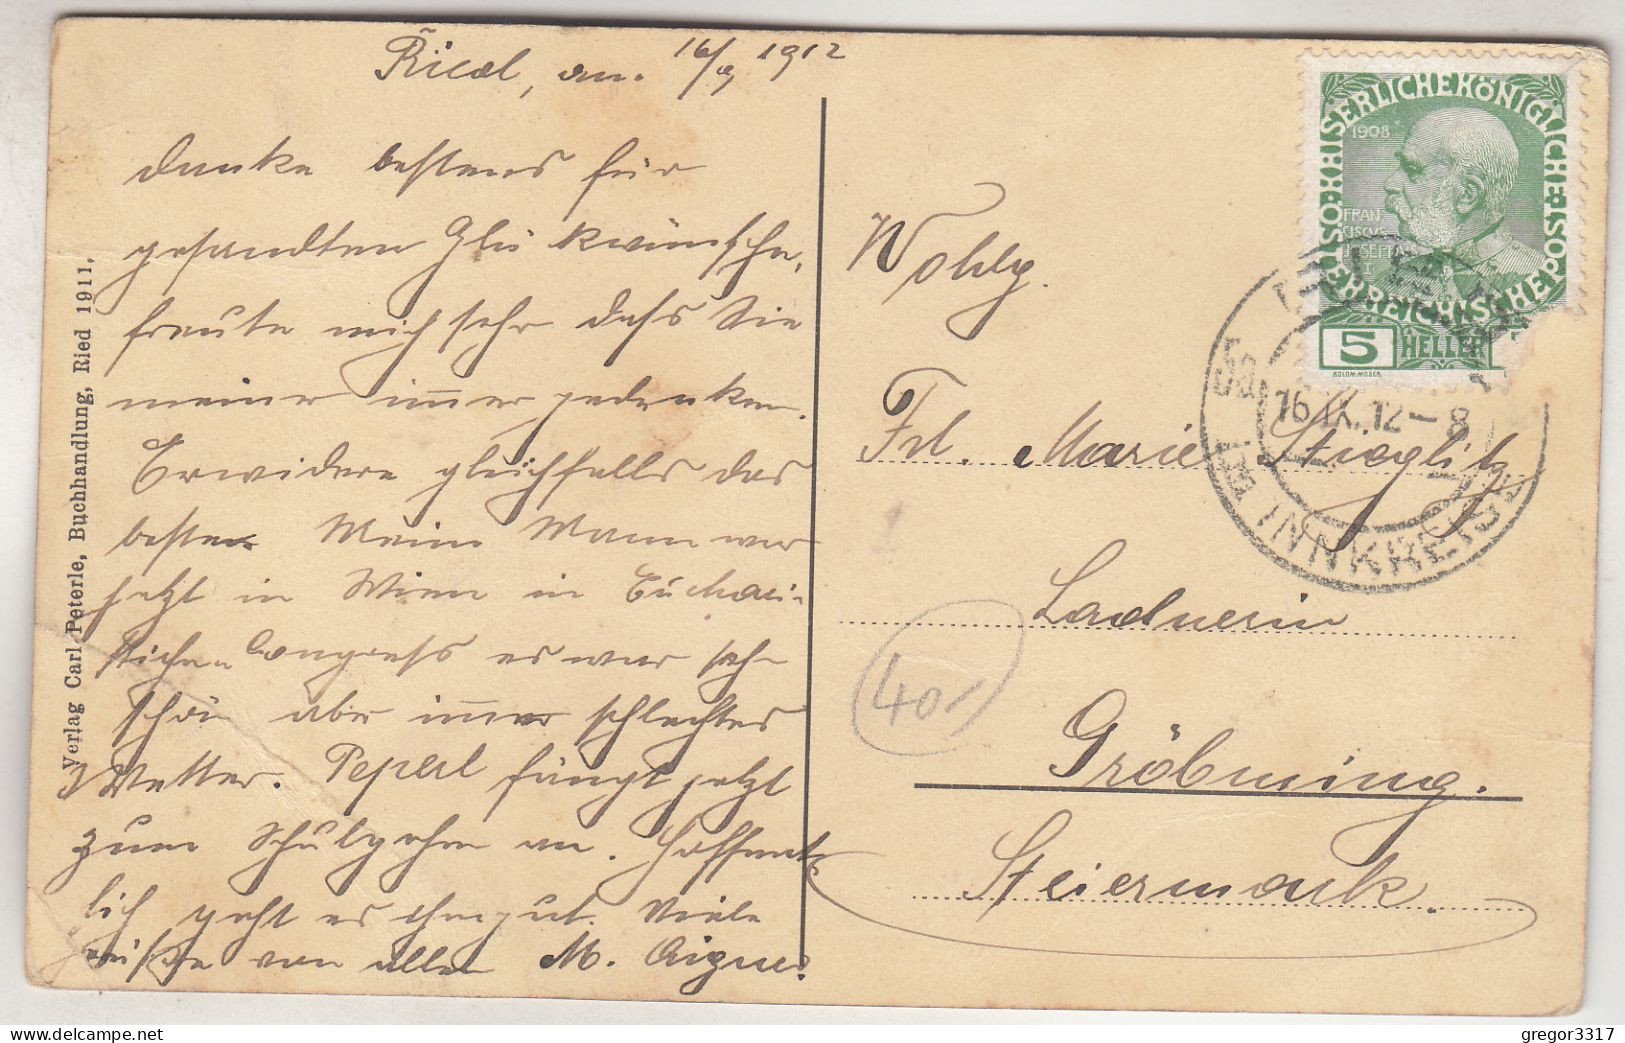 Ried, am. 16/9 1912
danke bestens für
gesandten Glückwünsche,
freute mich sehr dass Sie
meiner immer gedenken.
Erwidere gleichfalls das
beste. Mein Mann war
jetzt in Wien in Euchari-
stischen Congress es war sehr
schön aber immer schlechtes
Wetter. Peperl fängt jetzt
zum Schulgehen an. Hoffent-
lich geht es ihm gut. Viele
Grüße von allen M. Aigner.
Verlag Carl Peterle, Buchhandlung, Ried 1911.
Wohlg.
Frl. Marie Stieglitz
Ladnerin
Gröbming.
Steiermark.
40
KAISERLICHE KÖNIGLICHE ÖSTERREICHISCHE POST
1908
FRAN-
CISCVS
JOSEPH
I
5 HELLER
KOLOM. MOSER
16.IX.12-8
INNKREIS
gregor3317